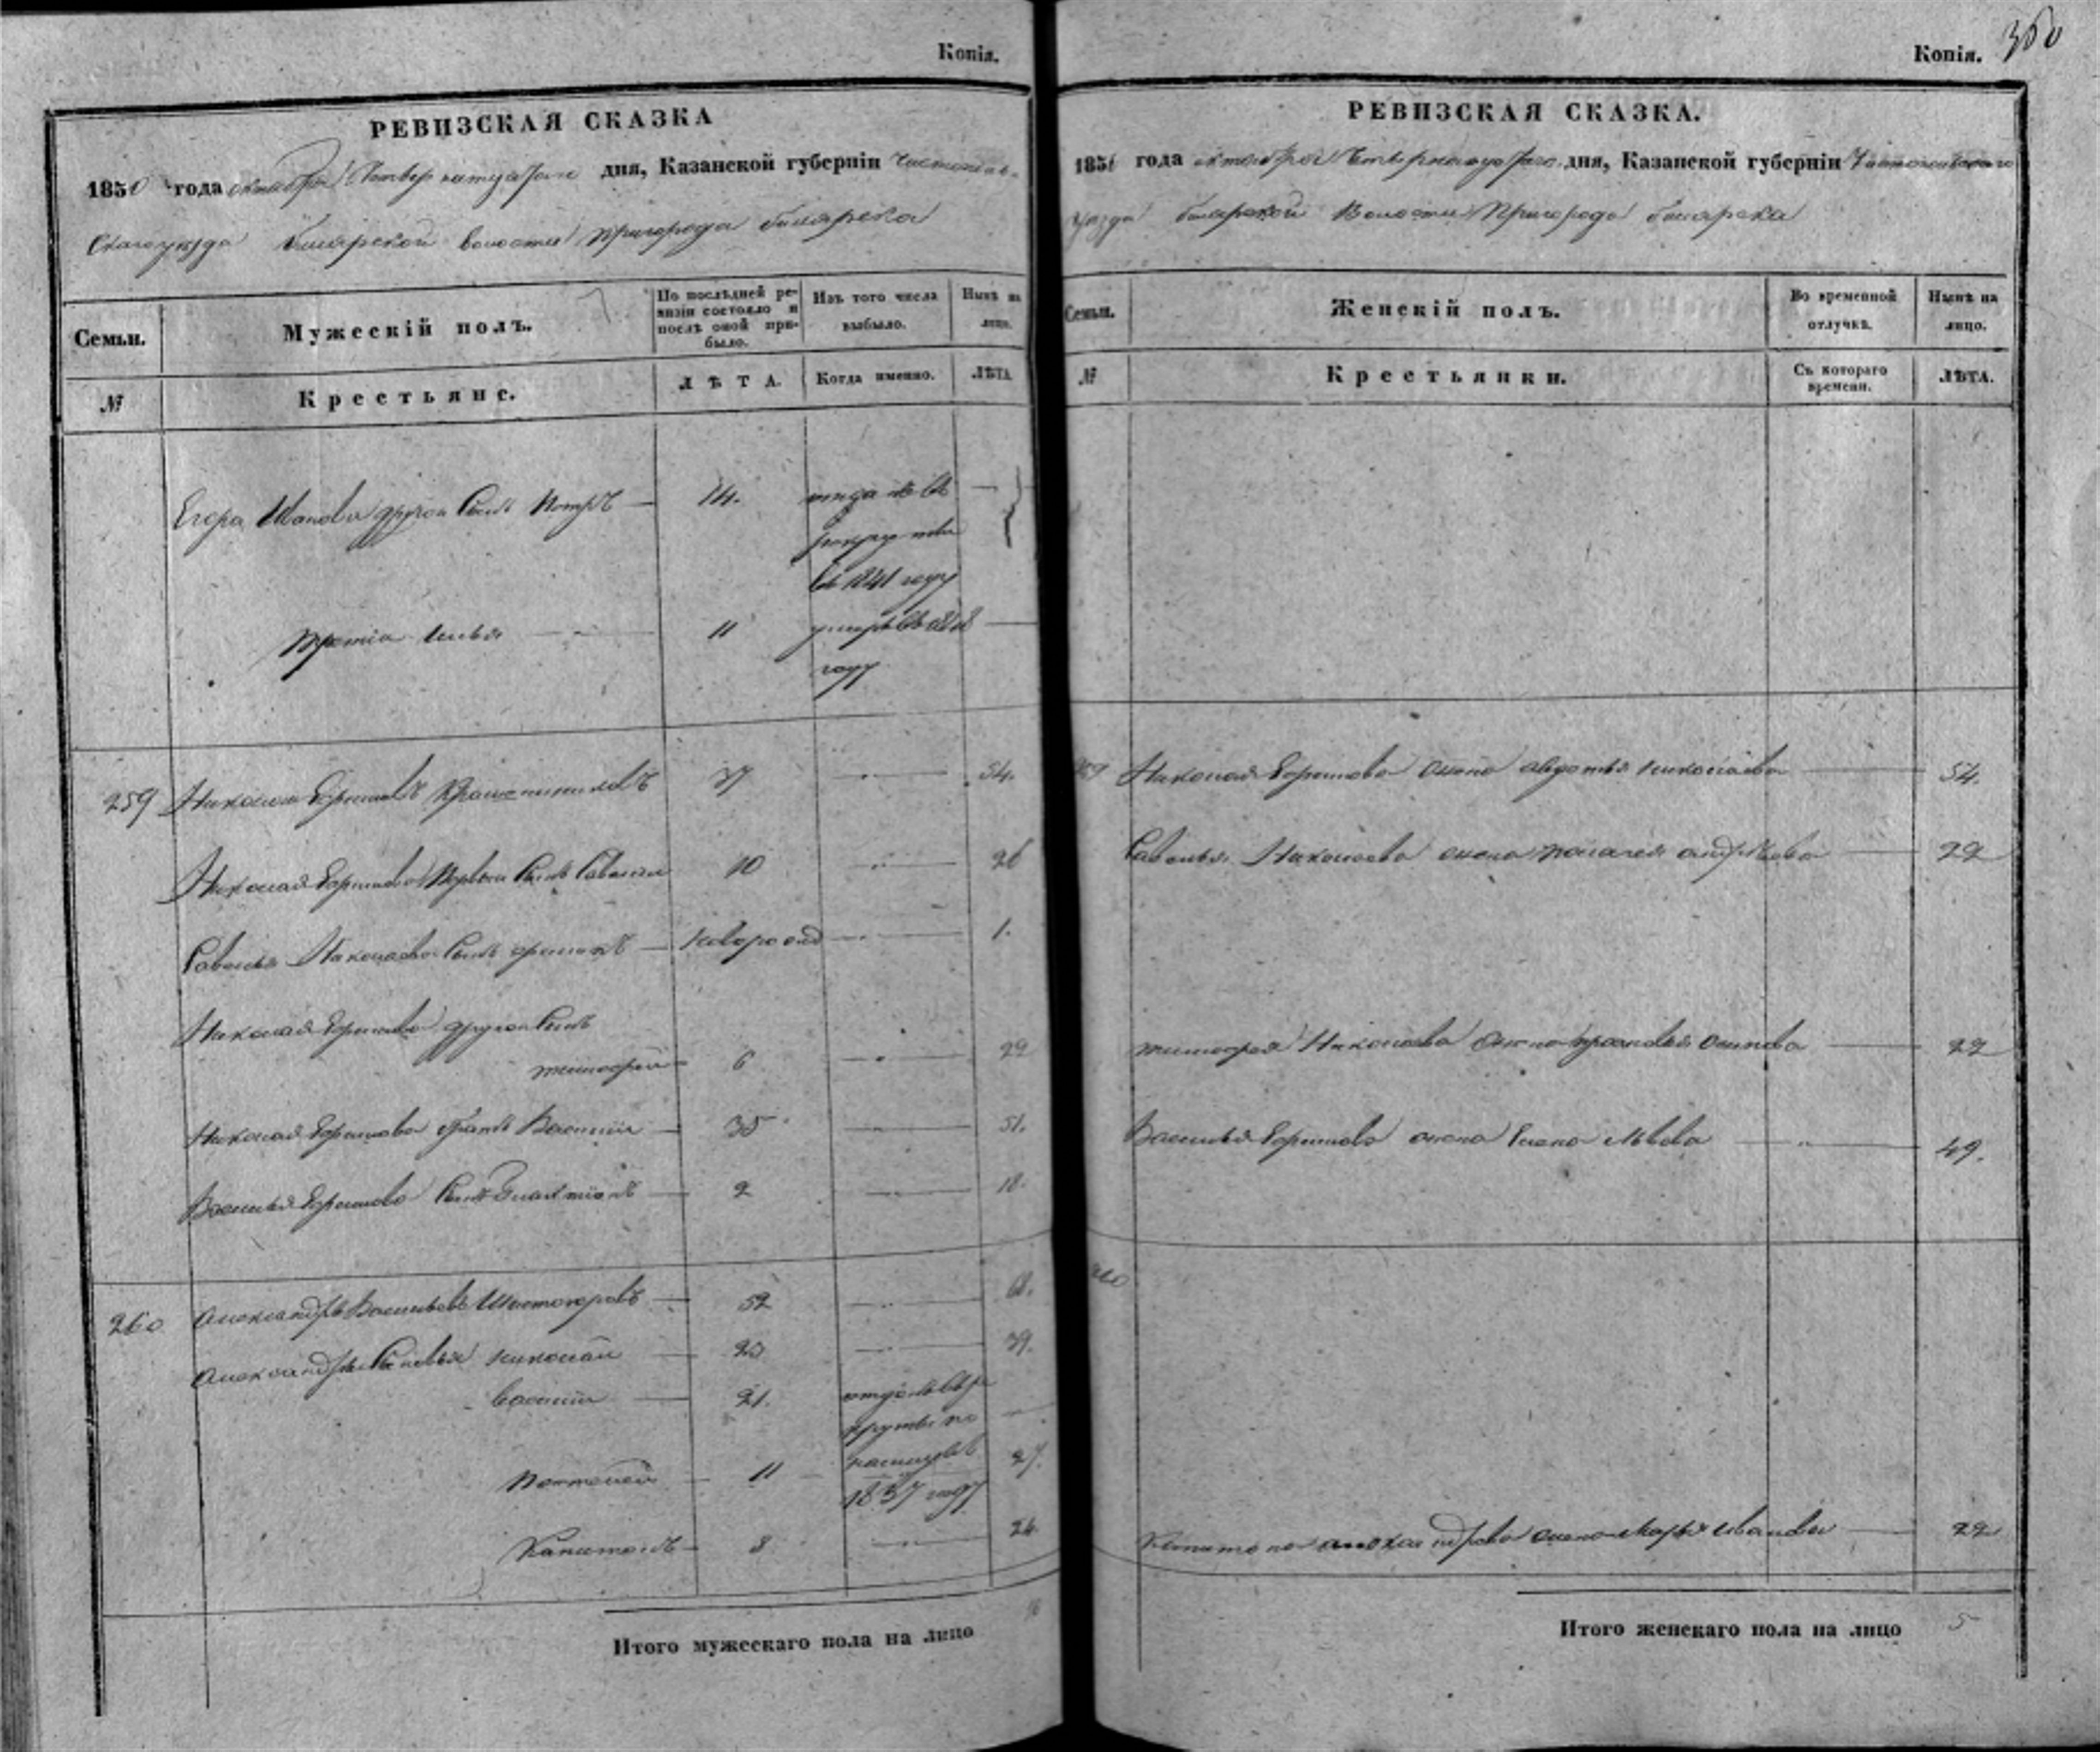 Копія.
РЕВИЗСКАЯ СКАЗКА
1850 года октября Четвертагонадесять дня, Казанской губерніи Чистополь-
скаго уезда билярской волости пригорода билярска
Семьи.
Мужескій полъ.
По послѣдней ре-
визіи состояло и
послѣ оной при-
было.
Изъ того числа
выбыло.
Нынѣ на
лицо.
№
Крестьяне.
ЛѢТА.
Когда именно.
ЛѢТА
Егора Иванова другой сынъ Петръ 14. отданъ въ
рекруты
въ 1841 году
третій Илья 11 умеръ въ
году
259 Николай Ефимовъ 37 54.
Николая Ефимова первый сынъ Савелий 10 26
Савелья Николаева сынъ новорожд 1.
Николая Ефимова другой сынъ
тимофей 6 22
Николая Ефимова братъ Василий 35 51.
Василья Ефимова сынъ 2 18.
260 Александръ Васильевъ 52 68.
Александра сыновья николай 23 39.
василий 21. отданъ въ ре
круты
1837 году
Пантелей 11 27.
Капитонъ 8 24.
Итого мужескаго пола на лицо 16
Копія. 360
РЕВИЗСКАЯ СКАЗКА.
1850 года октября Четвертагонадесять дня, Казанской губерніи Чистопольскаго
уезда билярской волости Пригорода билярска
Семьи.
Женскій полъ.
Во временной
отлучкѣ.
Нынѣ на
лицо.
№
Крестьянки.
Съ котораго
времени.
ЛѢТА.
259 Николая Ефимова жена авдотья николаева 54.
Савелья Николаева жена пелагея андреева 22
тимофея Николаева жена прасковья осипова 22
Василья Ефимова жена Елена Львова 49.
260
Капитона александрова жена марья Иванова 22
Итого женскаго пола на лицо 5